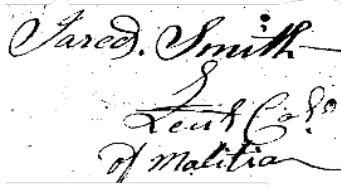 Jared. Smith
Leut Col.
of Malitia